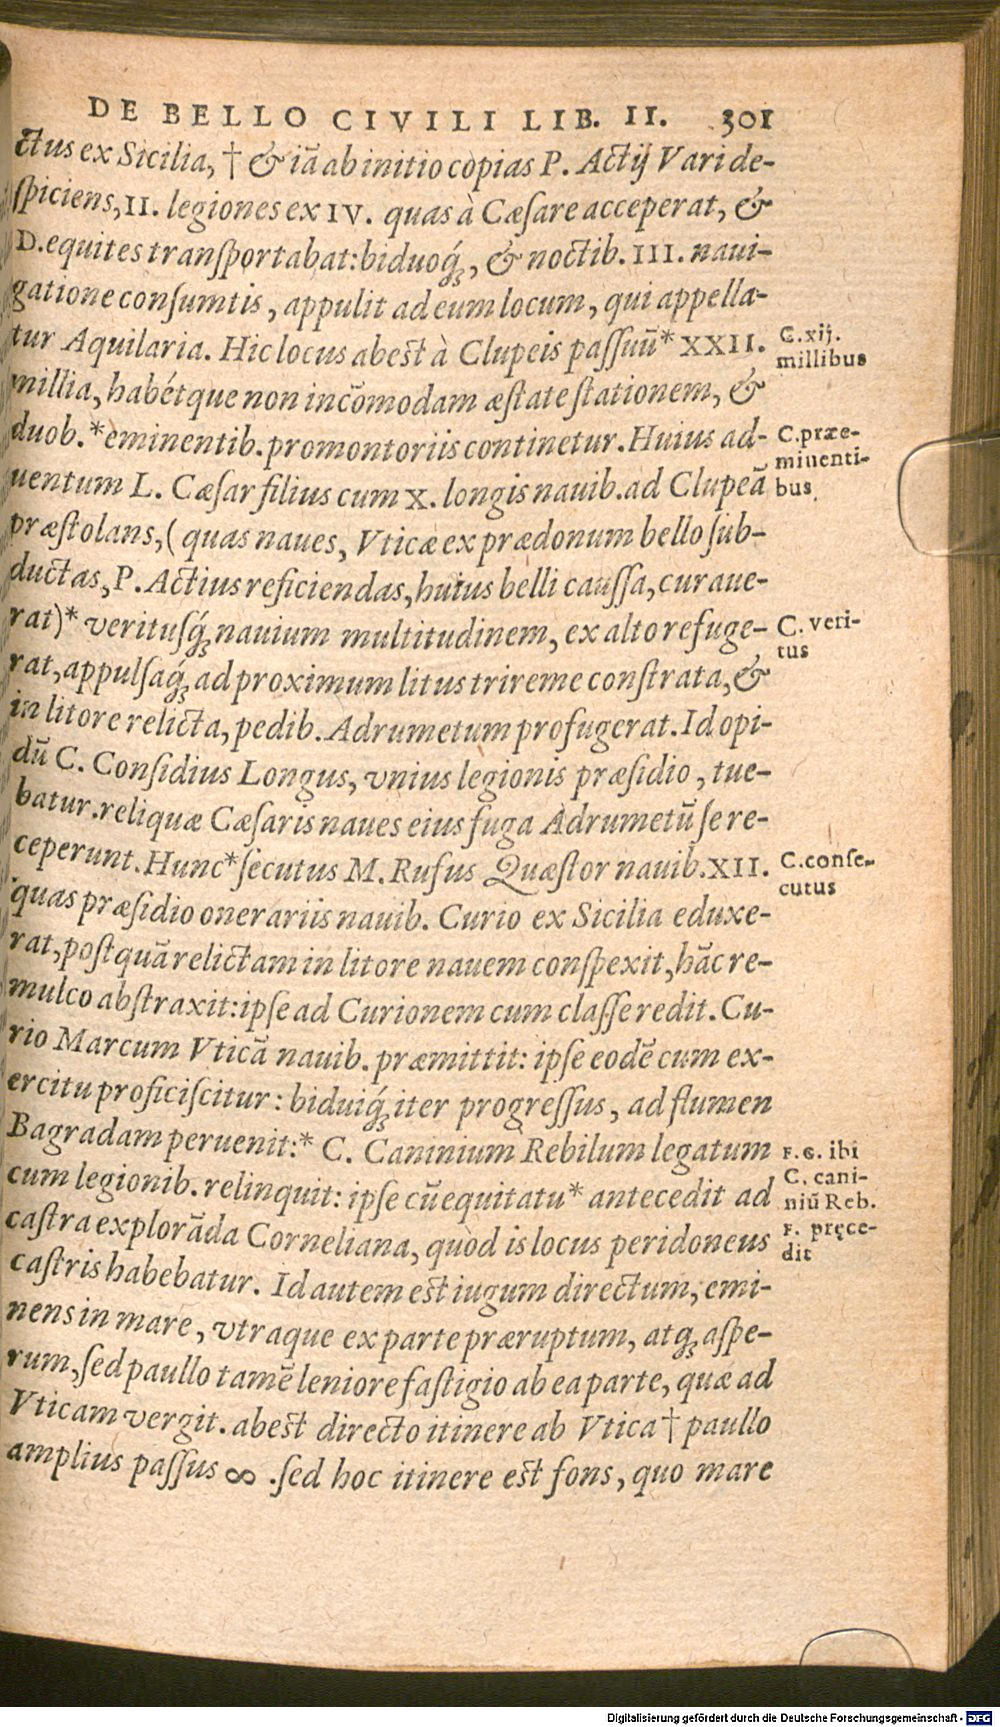 DE BELLO CIVILI LIB. II. 301
ctus ex Sicilia, † & iã ab initio copias P. Actij Vari de-
ſpiciens, II. legiones ex IV. quas à Cæſare acceperat, &
D. equites tranſportabat: biduoq́;, & noctib. III. naui-
gatione conſumtis, appulit ad eum locum, qui appella-
tur Aquilaria. Hic locus abest à Clupeis paſſuũ* XXII.
C. xij.
millibus
millia, habétque non incõmodam æſtate ſtationem, &
duob. *eminentib. promontoriis continetur. Huius ad-
C. præe-
minenti-
bus.
uentum L. Cæſar filius cum X. longis nauib. ad Clupeã
præſtolans, ( quas naues, Vticæ ex prædonum bello ſub-
ductas, P. Actius reficiendas, huius belli cauſſa, curaue-
rat)* veritusq́; nauium multitudinem, ex alto refuge-
C. veri-
tus
rat, appulſaq́; ad proximum litus trireme conſtrata, &
in litore relicta, pedib. Adrumetum profugerat. Id opi-
dũ C. Conſidius Longus, vnius legionis præſidio, tue-
batur. reliquæ Cæſaris naues eius fuga Adrumetũ ſe re-
ceperunt. Hunc* ſecutus M. Rufus Quæſtor nauib. XII.
C. conſe-
cutus
quas præſidio onerariis nauib. Curio ex Sicilia eduxe-
rat, poſtquã relictam in litore nauem conſpexit, hãc re-
mulco abſtraxit: ipſe ad Curionem cum claſſe redit. Cu-
rio Marcum Vticã nauib. præmittit: ipſe eodẽ cum ex-
ercitu proficiſcitur: biduiq́; iter progreſſus, ad flumen
Bagradam peruenit:* C. Caninium Rebilum legatum
F. G. ibi
C. cani-
niũ Reb.
cum legionib. relinquit: ipſe cũ equitatu* antecedit ad
F. pręce-
dit
caſtra explorãda Corneliana, quòd is locus peridoneus
caſtris habebatur. Id autem est iugum directum, emi-
nens in mare, vtraque ex parte præruptum, atq; aſpe-
rum, ſed paullo tamẽ leniore faſtigio ab ea parte, quæ ad
Vticam vergit. abest directo itinere ab Vtica † paullo
amplius paſſus ∞. ſed hoc itinere est fons, quo mare
Digitalisierung gefördert durch die Deutsche Forschungsgemeinschaft - DFG